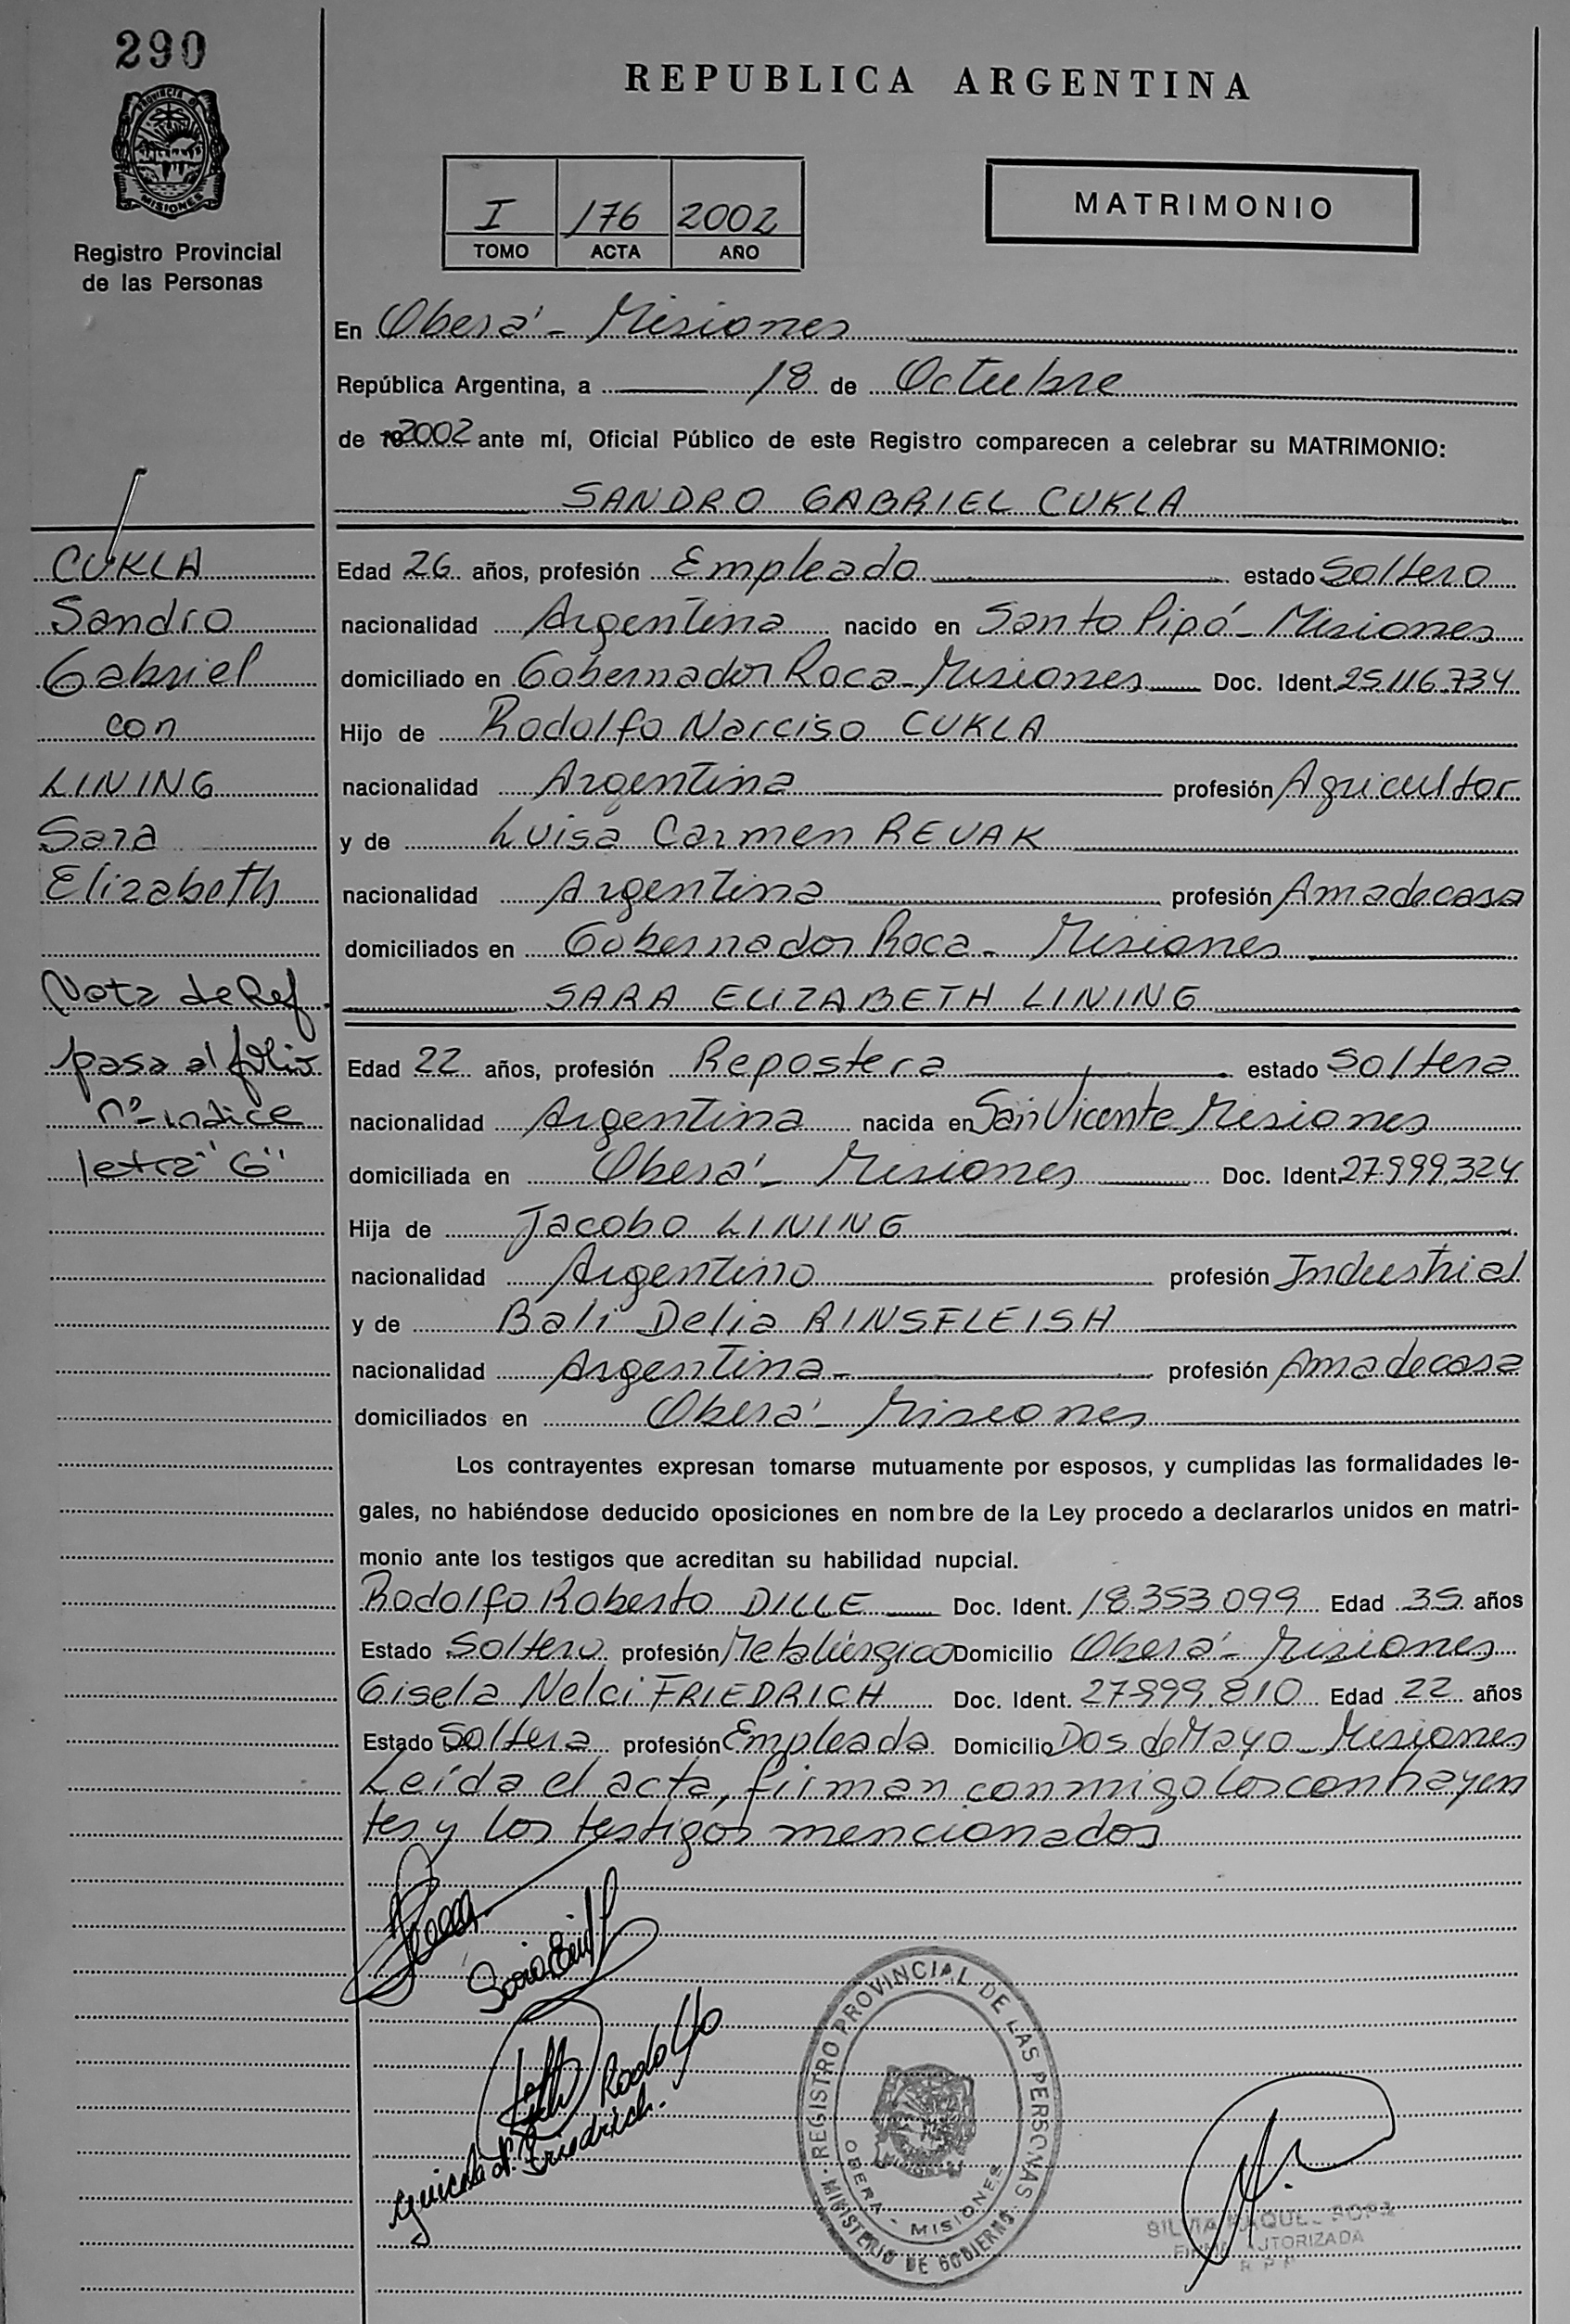 290
PROVINCIA D
MISIONES
Registro Provincial
de las Personas
REPUBLICA ARGENTINA
I 176 2002
TOMO ACTA AÑO
MATRIMONIO
En Oberá - Misiones
República Argentina, a 18 de Octubre
de 2002 ante mí, Oficial Público de este Registro comparecen a celebrar su MATRIMONIO:
SANDRO GABRIEL CUKLA
CUKLA
Sandro
Gabriel
con
LINING
Sara
Elizabeth
Nota de Ref.
pasa al folio
nº indice
letra "G"
Edad 26 años, profesión Empleado estado Soltero
nacionalidad Argentina nacido en Santo Pipó - Misiones
domiciliado en Gobernador Roca - Misiones Doc. Ident. 25.116.734
Hijo de Rodolfo Narciso CUKLA
nacionalidad Argentina profesión Agricultor
y de Luisa Carmen REVAK
nacionalidad Argentina profesión Ama de casa
domiciliados en Gobernador Roca - Misiones
SARA ELIZABETH LINING
Edad 22 años, profesión Repostera estado Soltera
nacionalidad Argentina nacida en San Vicente Misiones
domiciliada en Oberá - Misiones Doc. Ident. 27.999.324
Hija de Jacobo LINING
nacionalidad Argentino profesión Industrial
y de Bali Delia RINSFLEISH
nacionalidad Argentina - profesión Ama de casa
domiciliados en Oberá - Misiones
Los contrayentes expresan tomarse mutuamente por esposos, y cumplidas las formalidades le-
gales, no habiéndose deducido oposiciones en nombre de la Ley procedo a declararlos unidos en matri-
monio ante los testigos que acreditan su habilidad nupcial.
Rodolfo Roberto DILLE Doc. Ident. 18.353.099 Edad 35 años
Estado Soltero profesión Metalúrgico Domicilio Oberá - Misiones
Gisela Nelci FRIEDRICH Doc. Ident. 27.999.810 Edad 22 años
Estado Soltera profesión Empleada Domicilio Dos de Mayo - Misiones
Leída el acta, firman conmigo los contrayen
tes y los testigos mencionados
Rodolfo
N. Friedrich.
REGISTRO PROVINCIAL DE LAS PERSONAS
MINISTERIO DE GOBIERNO
OBERA - MISIONES
SILVIA RAQUEL
FIRMA AUTORIZADA
R P P